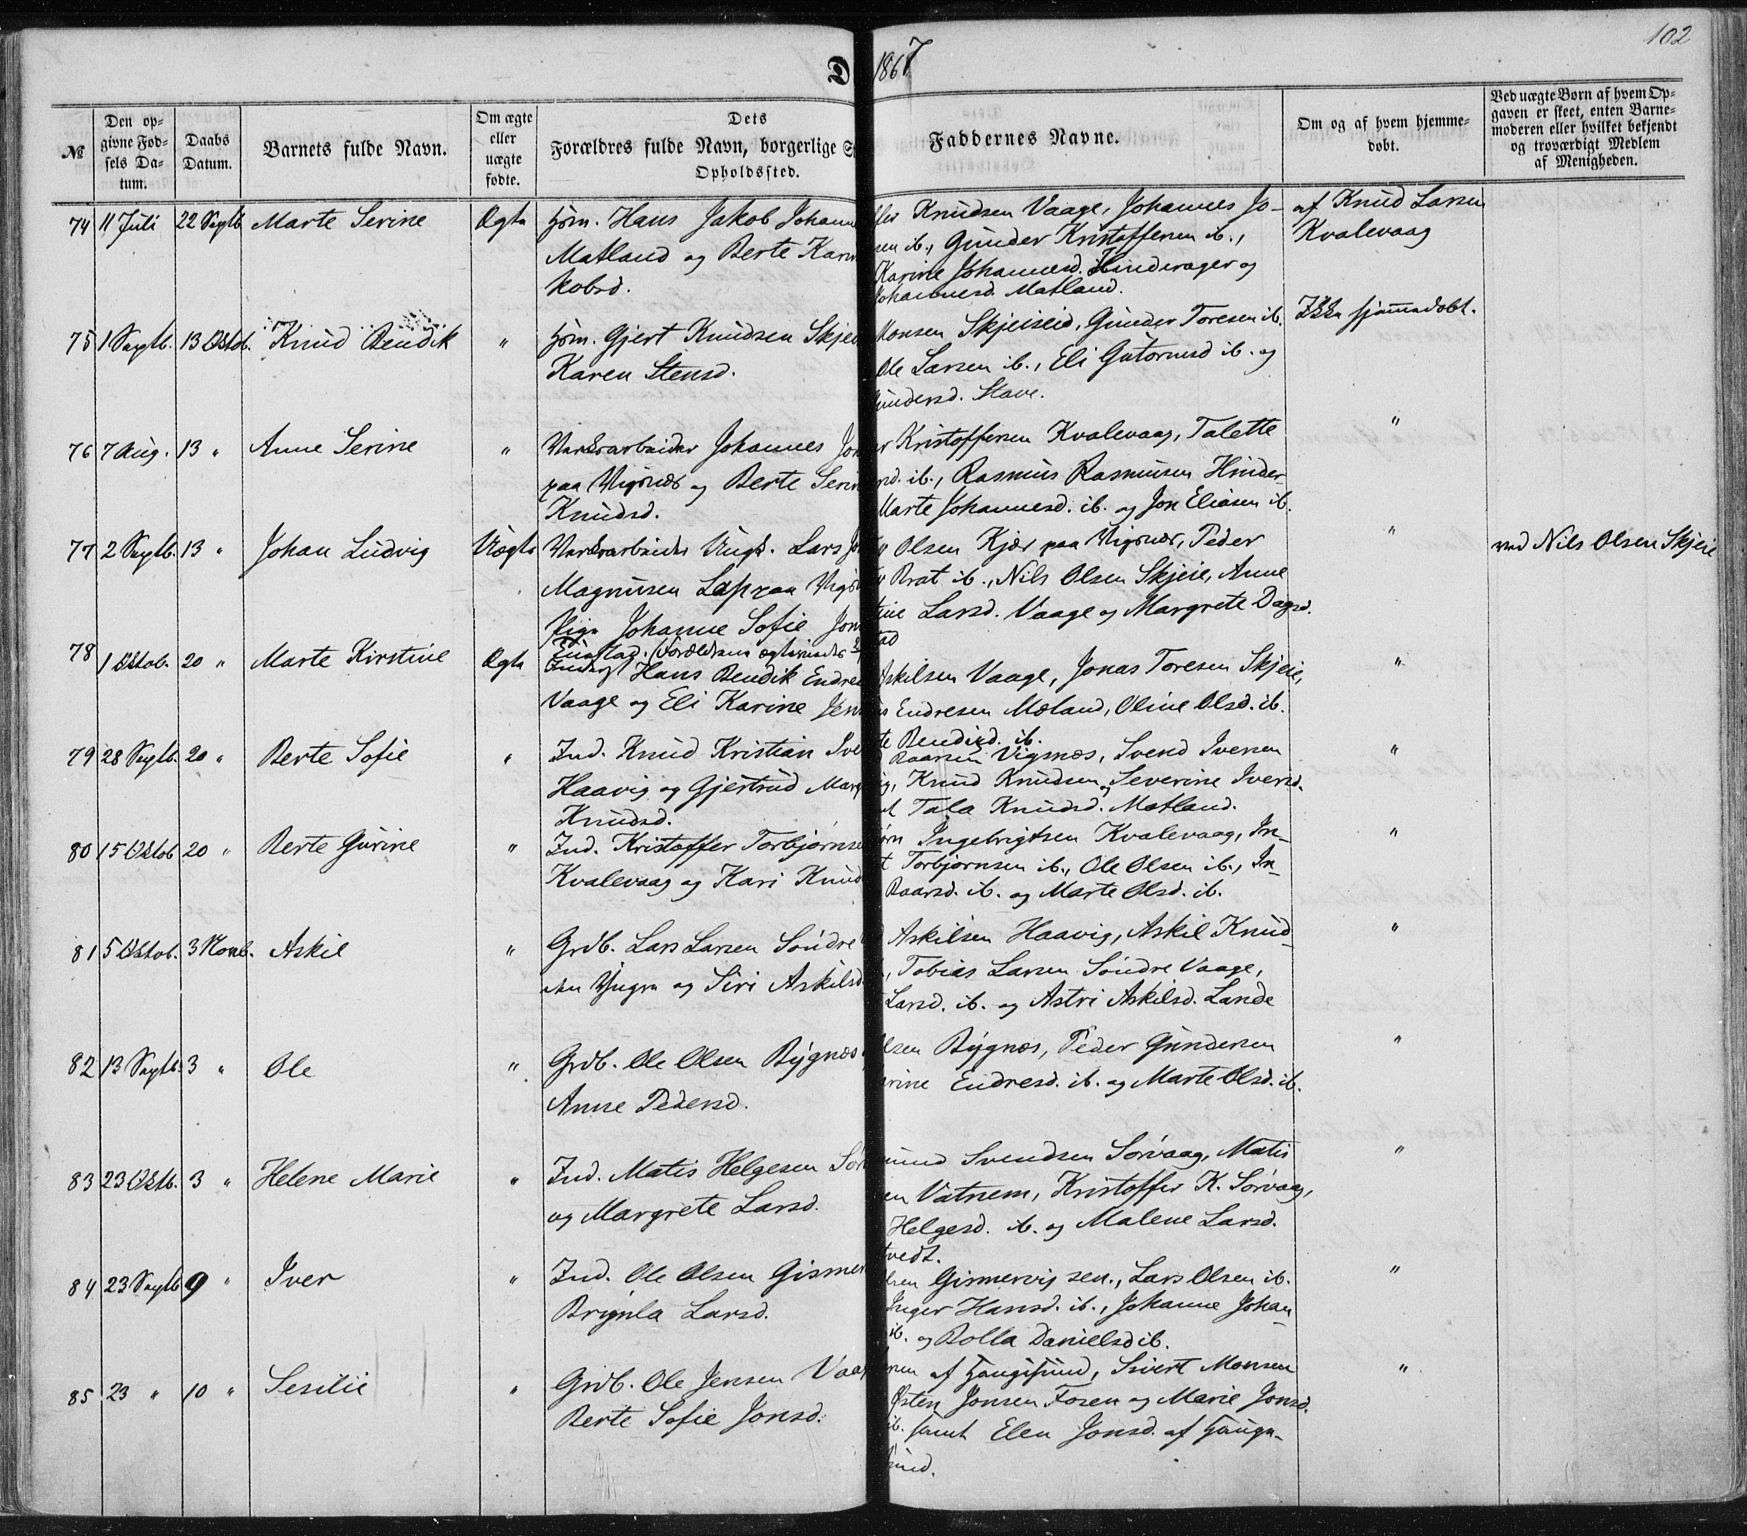 102
D 1867
№
Den op-
givne Fød-
sels Da-
tum.
Daabs
Datum.
Barnets fulde Navn.
Om ægte
eller
uægte
fødte.
Dets
Forældres fulde Navn, borgerlige S
Opholdssted.
Faddernes Navne.
Om og af hvem hjemme-
døbt.
Ved uægte Børn af hvem Op-
gaven er skeet, enten Barne-
moderen eller hvilket bekjendt
og troværdigt Medlem
af Menigheden.
74 11 Juli 22 Septb. Marte Serine Ægte Hjm. Hans Jakob Johann
Matland og Berte Karin
kobsd.
Knudsen Vaage, Johannes Jo-
sen ib., Gunder Kristoffersen ib.,
Karine Johannesd. Hinderager og
Johannesd. Matland.
af Knud Larsen
Kvalevaag
75 1 Septb. 13 Oktob. Knud Bendik " Hjm. Gjert Knudsen Skjei
Karen Stensd.
Monsen Skjeiseid, Gunder Toresen ib.
Ole Larsen ib., Eli Gutormsd ib. og
undersd. Stave.
Ikke hjemmedøbt.
76 7 Aug. 13 " Anne Serine " Værksarbeider Johannes Jo
paa Vigsnæs og Berte Serin
Knudsd.
Kristoffersen Kvalevaag, Talette
sd. ib., Rasmus Rasmusen Hinder
Marte Johannesd. ib. og Jon Eliasen ib.
"
77 2 Septb. 13 " Johan Ludvig Uægte Værksarbeider Ungk. Lars Jo
Magnusen paa Vigs
Pige Johanne Sofie Jon
Olsen Kjær paa Vigsnæs, Peder
Brat ib., Nils Olsen Skjeie, Anne
tine Larsd. Vaage og Margrete Dagsd.
tad
"
ved Nils Olsen Skjeie
78 1 Oktob. 20 " Marte Kirstine Ægte
Hans Bendik Endre
Vaage og Eli Karine Jen
Askilsen Vaage, Jonas Toresen Skjeie,
s Endresen Mæland, Oline Olsd. ib.
te Bendixd. ib.
"
79 28 Septb. 20 " Berte Sofie " Ind. Knud Kristian Ive
Haavig og Gjertrud Marg
Knudsd.
Roarsen Vigsnæs, Svend Iversen
ig, Knud Knudsen, Severine Iversd.
Tala Knudsd. Matland.
"
80 15 Oktob 20 " Berte Gurine " Ind. Kristoffer Torbjørnse
Kvalevaag og Kari Knud
ørn Ingebrigtsen Kvalevaag, In-
t Torbjørnsen ib., Ole Olsen ib., In-
Roarsd. ib. og Marte Olsd. ib.
"
81 5 Oktob. 3 Novb. Askil " Grdb. Lars Larsen Søndre
og Siri Askilsd
Askilsen Haavig, Askil Knud-
, Tobias Larsen Søndre Vaage,
Larsd. ib. og Astri Askilsd. Lande
"
82 13 Septb. 3 " Ole " Grdb. Ole Olsen Bygnæs
Anne Pedersd.
lsen Bygnæs, Peder Gundersen
arine Endresd. ib. og Marte Olsd. ib.
"
83 23 Oktb. 3 " Helene Marie " Ind. Matis Helgesen Sør
og Margrete Larsd.
mund Svendsen Sørvaag, Matis
en Vatnem, Kristoffer K. Sørvaag,
Helgesd. ib. og Malene Larsd.
tvedt.
"
84 23 Septb 9 " Iver " Ind. Ole Olsen Gismer
Brynla Larsd.
lsen Gismervig sen., Lars Olsen ib.
Inger Hansd. ib., Johanne Johan-
ib. og Bolla Danielsd ib.
"
85 23 " 10 " Sesilie " Grdb. Ole Jensen Vaa
Berte Sofie Jonsd.
nsen af Haugesund, Sivert Monsen
Østen Jonsen Fosen og Marie Jonsd.
ib. samt Elen Jonsd. af Hauge-
sund.
"